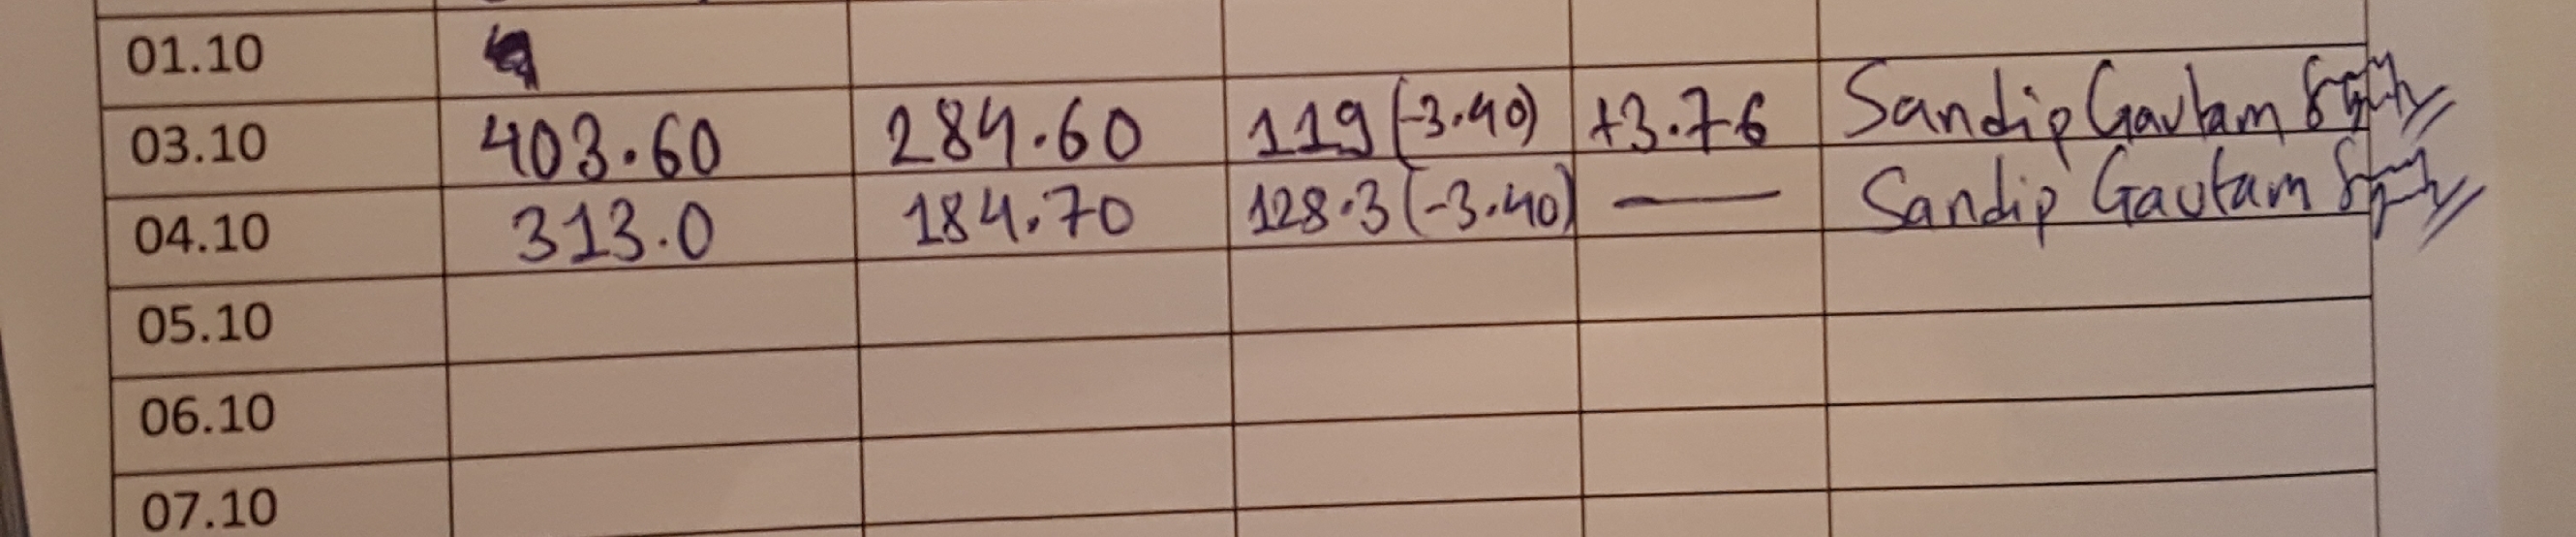 01.10
03.10 403.60 284.60 119 (-3.40) +3.76 Sandip Gautam
04.10 313.0 184.70 128.3 (-3.40) — Sandip Gautam
05.10
06.10
07.10